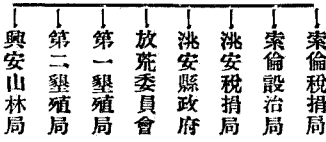 索倫稅捐局
索倫設治局
洮安稅捐局
洮安縣政府
放荒委員會
第一墾殖局
第二墾殖局
興安山林局